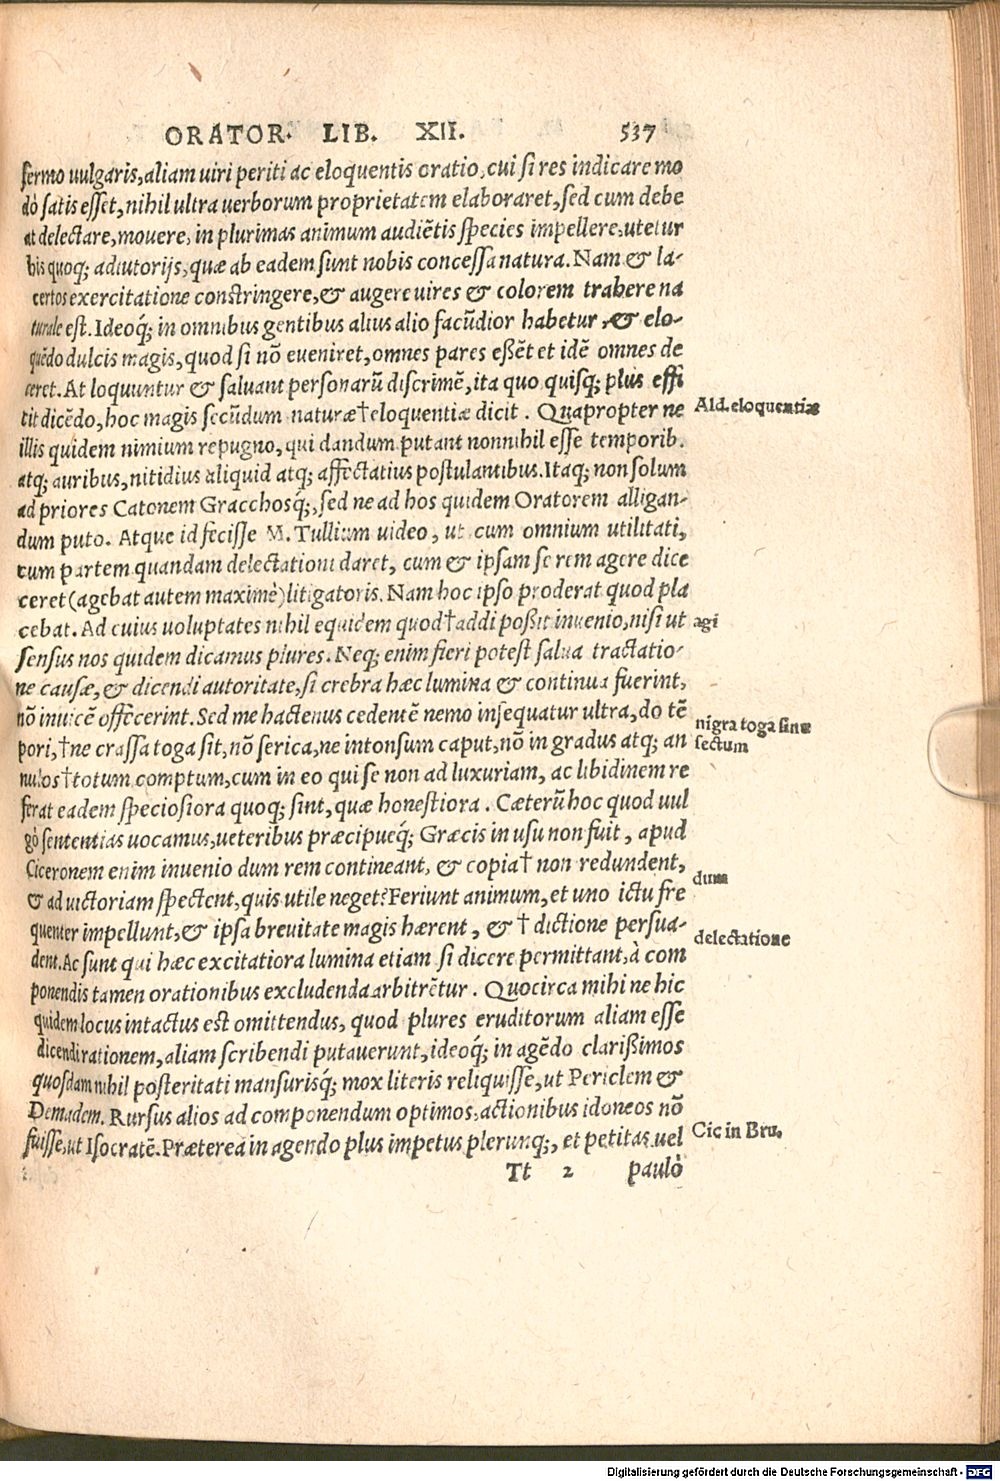 ORATOR. LIB. XII. 537
sermo uulgaris, aliam uiri periti ac eloquentis oratio, cui si res indicare mo
dò satis esset, nihil ultra uerborum proprietatem elaboraret, sed cum debe
at delectare, mouere, in plurimas animum audiẽtis species impellere, utetur
his quoq; adiutorijs, quæ ab eadem sunt nobis concessa natura. Nam & la-
certos exercitatione constringere, & augere uires & colorem trahere na
turale est. Ideoq́; in omnibus gentibus alius alio facũdior habetur, & elo-
quẽdo dulcis magis, quod si nõ eueniret, omnes pares eßẽt et idẽ omnes de
ceret. At loquuntur & saluant personarũ discrimẽ, ita quo quisq; plus effi
cit dicẽdo, hoc magis secũdum naturæ † eloquentiæ dicit. Quapropter ne
Ald. eloquentiæ
illis quidem nimium repugno, qui dandum putant nonnihil esse temporib.
atq; auribus, nitidius aliquid atq; affectatius postulantibus. Itaq; non solum
ad priores Catonem Gracchosq́;, sed ne ad hos quidem Oratorem alligan-
dum puto. Atque id fecisse M. Tullium uideo, ut cum omnium utilitati,
tum partem quandam delectationi daret, cum & ipsam se rem agere dice
ceret (agebat autem maximè) litigatoris. Nam hoc ipso proderat quod pla
cebat. Ad cuius uoluptates nihil equidem quod † addi poßit inuenio, nisi ut
agi
sensus nos quidem dicamus plures. Neq; enim fieri potest salua tractatio-
ne causæ, & dicendi autoritate, si crebra hæc lumina & continua fuerint,
nõ inuicẽ offecerint. Sed me hactenus cedentẽ nemo insequatur ultra, do tẽ
pori, † ne crassa toga sit, nõ serica, ne intonsum caput, nõ in gradus atq; an
nigra toga sine
nulos † totum comptum, cum in eo qui se non ad luxuriam, ac libidinem re
sectum
ferat eadem speciosiora quoq; sint, quæ honestiora. Cæterũ hoc quod uul
gò sententias uocamus, ueteribus præcipueq́; Græcis in usu non fuit, apud
Ciceronem enim inuenio dum rem contineant, & copia † non redundent,
dum
& ad uictoriam spectent, quis utile neget? Feriunt animum, et uno ictu fre
quenter impellunt, & ipsa breuitate magis hærent, & † dictione persua-
delectatione
dent. Ac sunt qui hæc excitatiora lumina etiam si dicere permittant, à com
ponendis tamen orationibus excludenda arbitrẽtur. Quocirca mihi ne hic
quidem locus intactus est omittendus, quod plures eruditorum aliam esse
dicendi rationem, aliam scribendi putauerunt, ideoq́; in agẽdo clarißimos
quosdam nihil posteritati mansurisq́; mox literis reliquisse, ut Periclem &
Demadem. Rursus alios ad componendum optimos, actionibus idoneos nõ
fuisse, ut Isocratẽ. Præterea in agendo plus impetus plerunq;, et petitas uel
Cic in Bru.
Tt 2 paulò
Digitalisierung gefördert durch die Deutsche Forschungsgemeinschaft - DFG